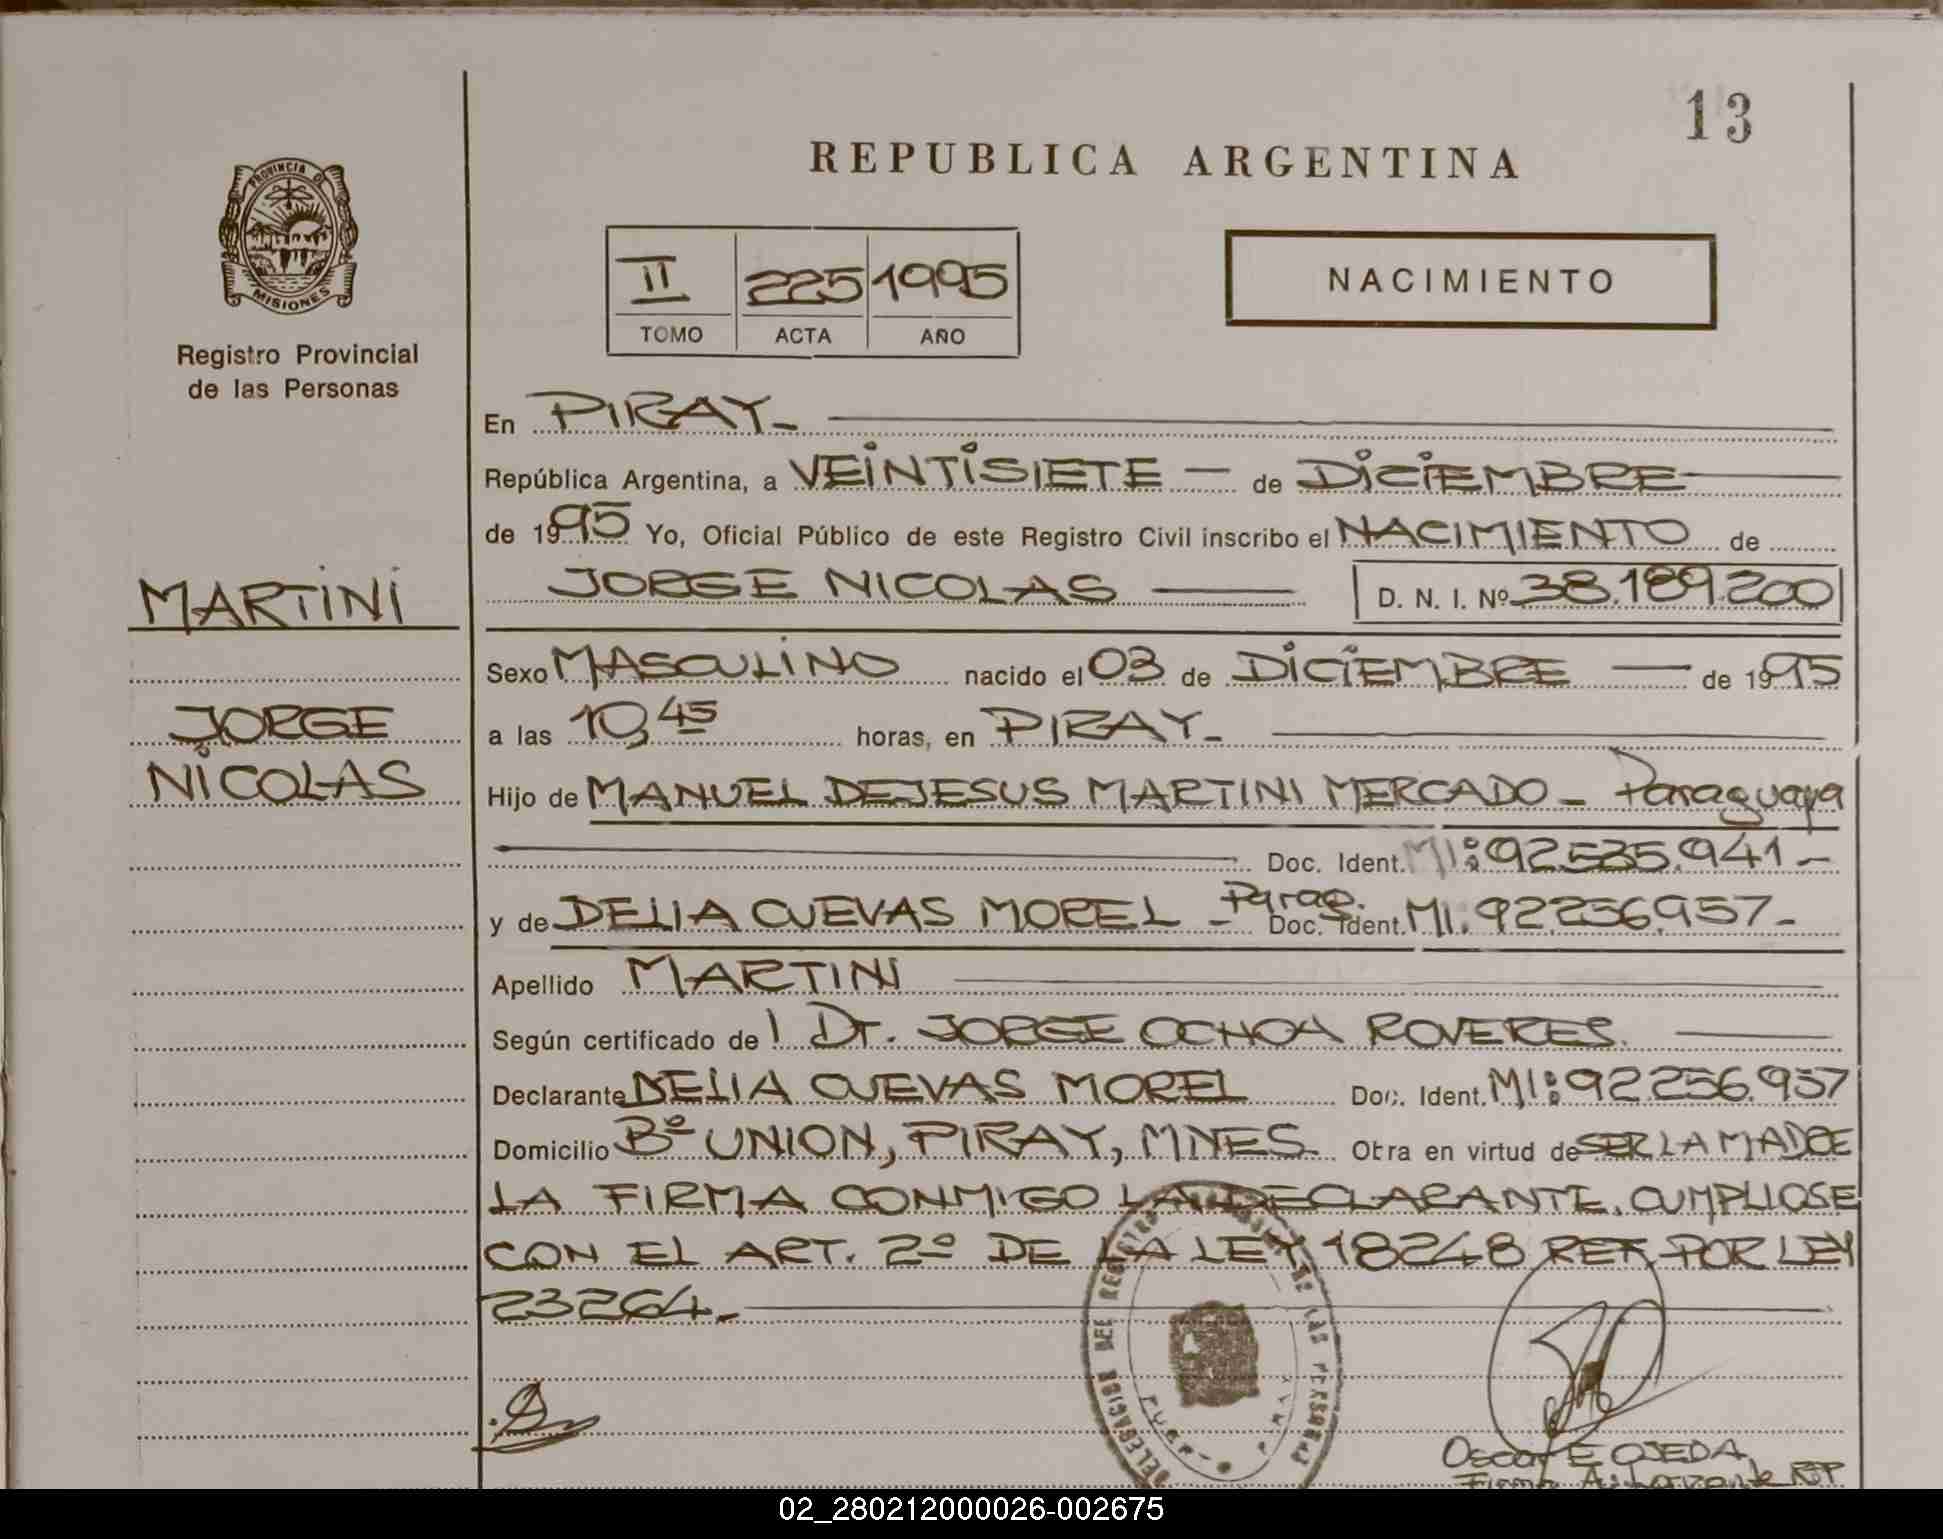 13
REPUBLICA ARGENTINA
PROVINCIA DE
MISIONES
Registro Provincial
de las Personas
II 225 1995
TOMO ACTA AÑO
NACIMIENTO
En PIRAY-
República Argentina, a VEINTISIETE — de DICIEMBRE
de 1995 Yo, Oficial Público de este Registro Civil inscribo el NACIMIENTO de
JORGE NICOLAS — D. N. I. Nº 38.189.200
MARTINI
JORGE
NICOLAS
Sexo MASCULINO nacido el 03 de DICIEMBRE — de 1995
a las 10,45 horas, en PIRAY-
Hijo de MANUEL DEJESUS MARTINI MERCADO - Paraguaya
Doc. Ident. MI: 92.535.941-
y de DELIA CUEVAS MOREL - Parag. Doc. Ident. MI. 92.256.957-
Apellido MARTINI
Según certificado de l Dr. JORGE OCHOA ROVERES.
Declarante DELIA CUEVAS MOREL Doc. Ident. MI: 92.256.957
Domicilio Bº UNION, PIRAY, MNES. Otra en virtud de SER LA MADRE
LA FIRMA CONMIGO LA DECLARANTE. CUMPLIOSE
CON EL ART. 2º DE LA LEY 18248 REF. POR LEY
23264.-
DELEGACION DEL REGISTRO DE LAS PERSONAS
PUERTO PIRAY
Oscar E OJEDA
Firma Autorizante RP
02_280212000026-002675